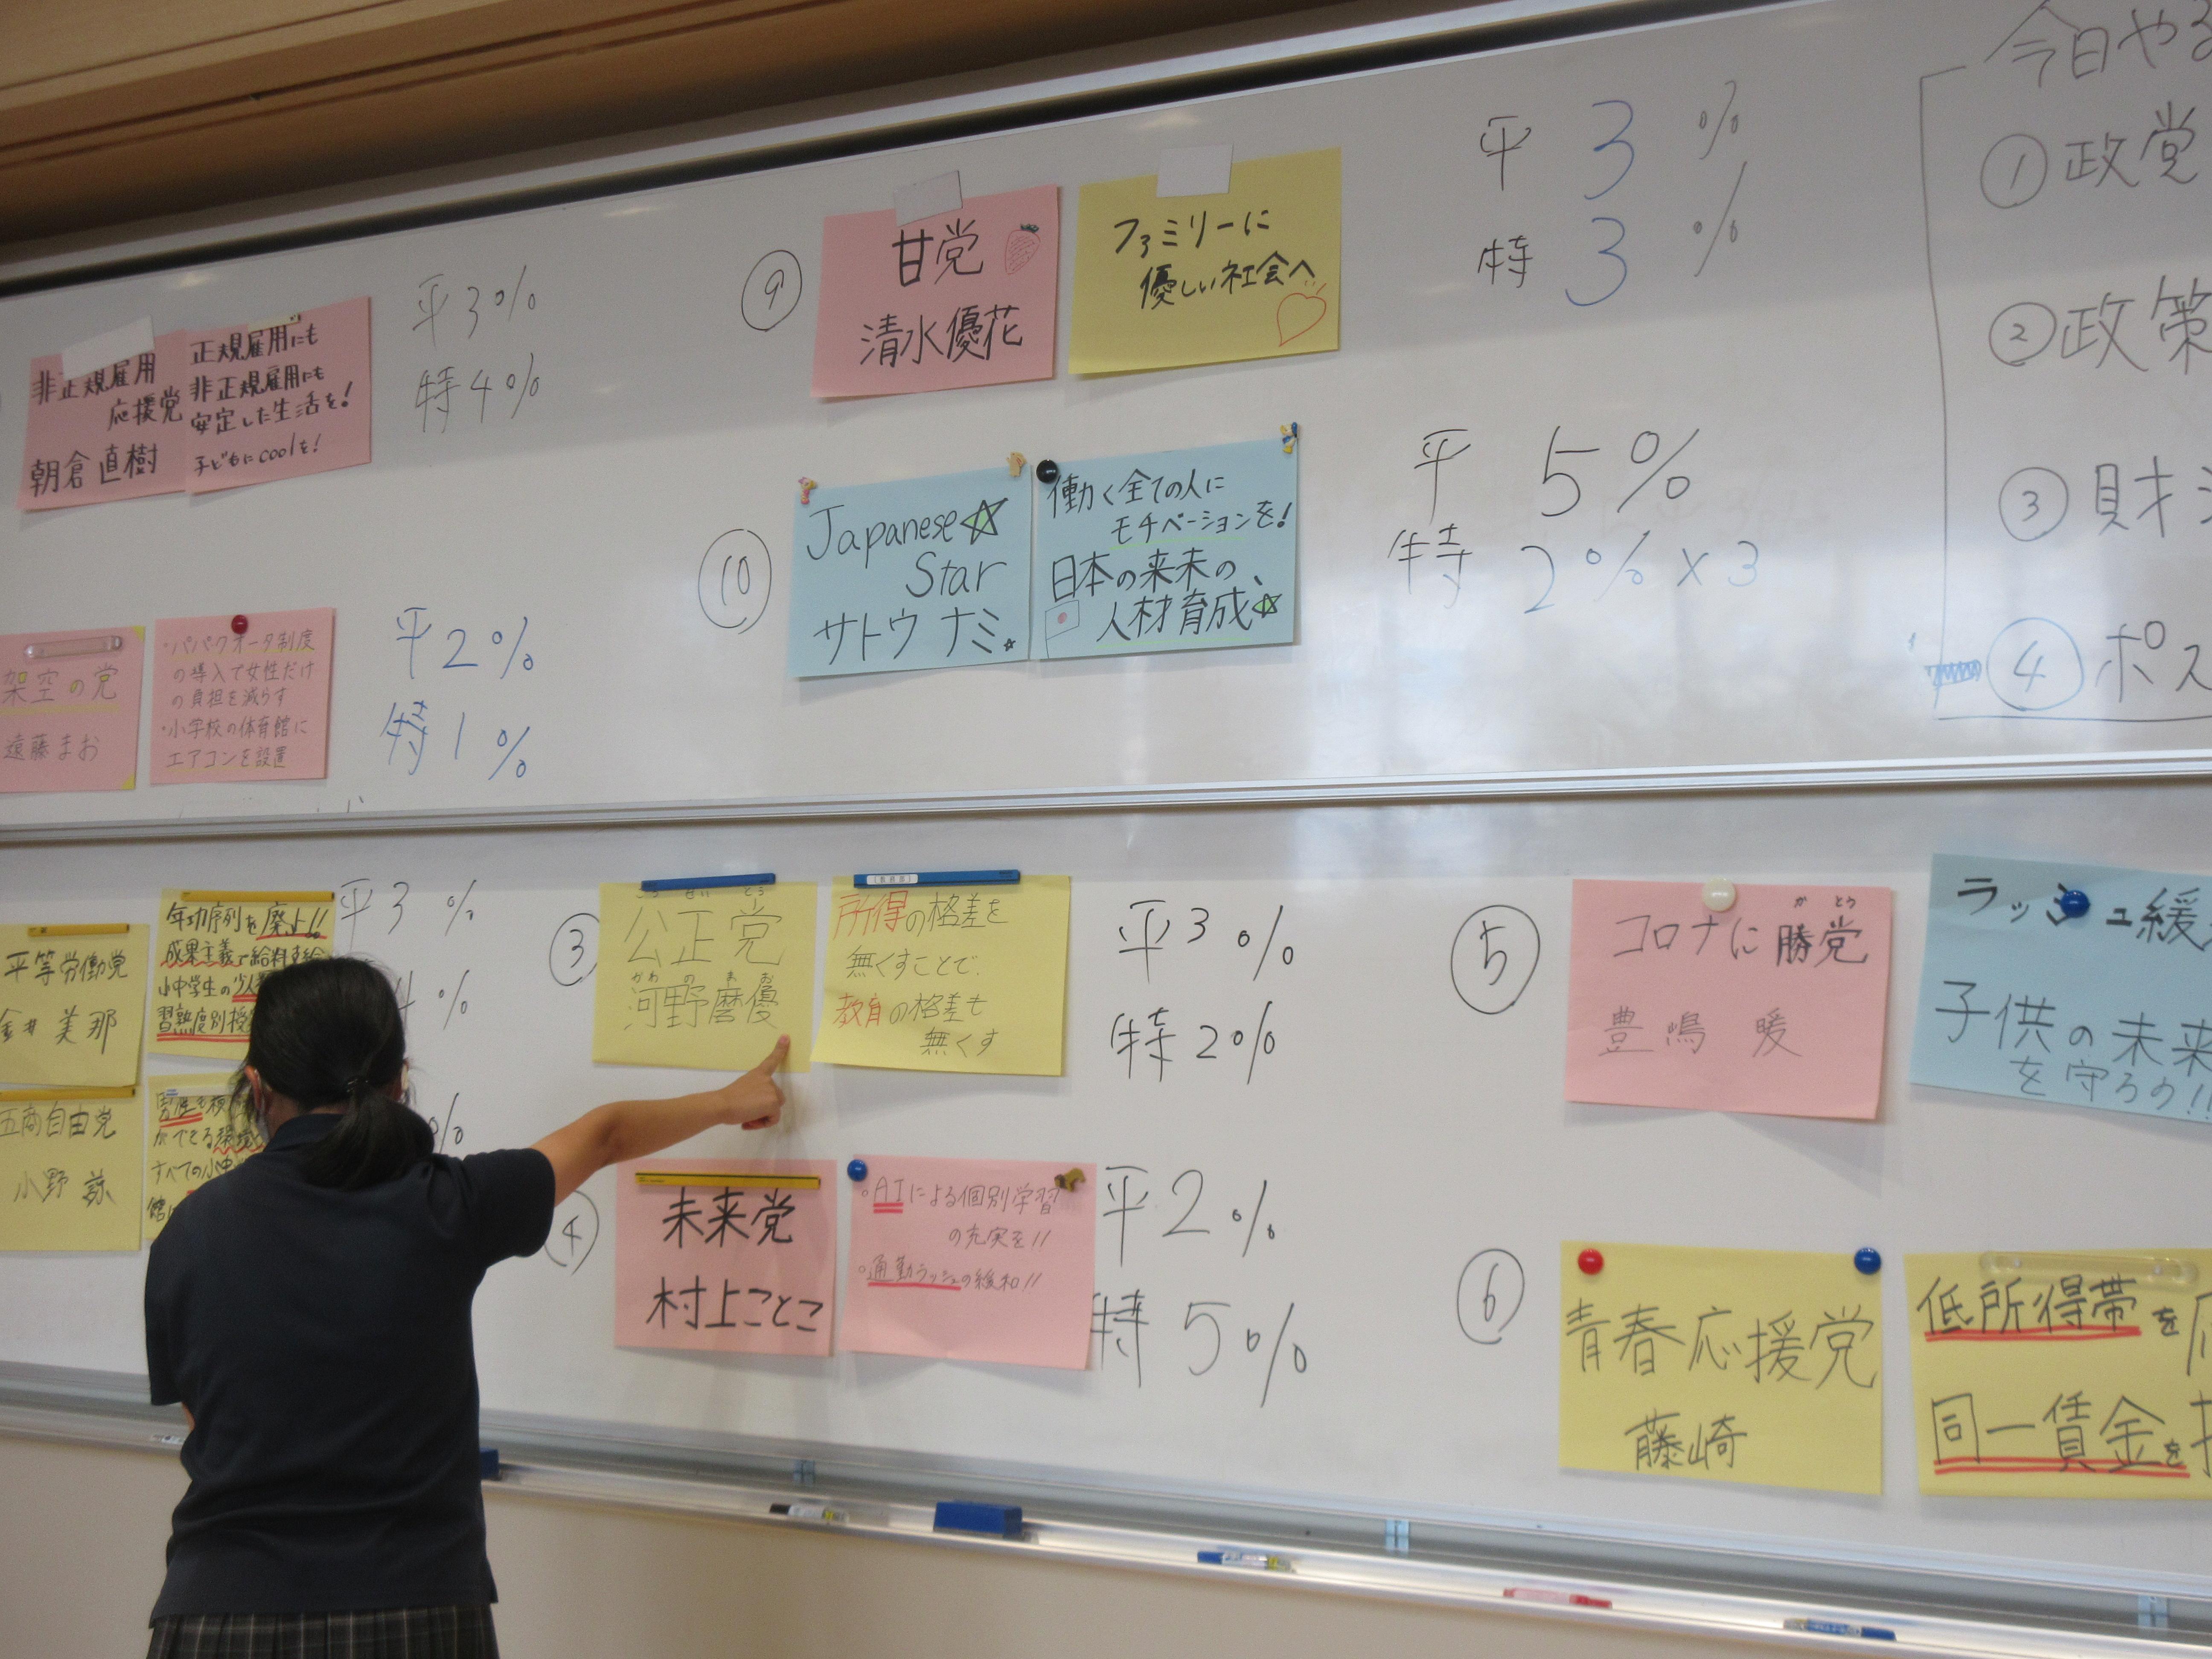 非正規雇用
応援党
朝倉直樹
正規雇用にも
非正規雇用にも
安定した生活を!
子どもにcoolを!
平3%
特4%
架空の党
遠藤まお
・パパクオータ制度
の導入で女性だけ
の負担を減らす
・小学校の体育館に
エアコンを設置
平2%
特1%
⑨
甘党
清水優花
ファミリーに
優しい社会へ
平 3 %
特 3 %
⑩
Japanese☆
Star
サトウナミ☆
働く全ての人に
モチベーションを!
日本の来来の、
人材育成☆
平 5%
特 2%×3
今日やる
①政党
②政策
③財
④ポス
平等労働党
金井美那
年功序列を廃止!!
成果主義で給料支給
小中学生の少人
習熟度別授
平3 %
4 %
五商自由党
小野
ができる環境
すべての小中
%
③
こうせいとう
公正党
かわのまお
河野磨優
所得の格差を
無くすことで、
教育の格差も
無くす
平3%
特2%
④
未来党
村上ことこ
。AIによる個別学習
の充実を!!
。通勤ラッシュの緩和!!
平2%
特5%
⑤
がとう
コロナに勝党
豊嶋 暖
ラッシュ緩
子供の未来
を守ろう!!
⑥
青春応援党
藤崎
低所得帯を
同一賃金を